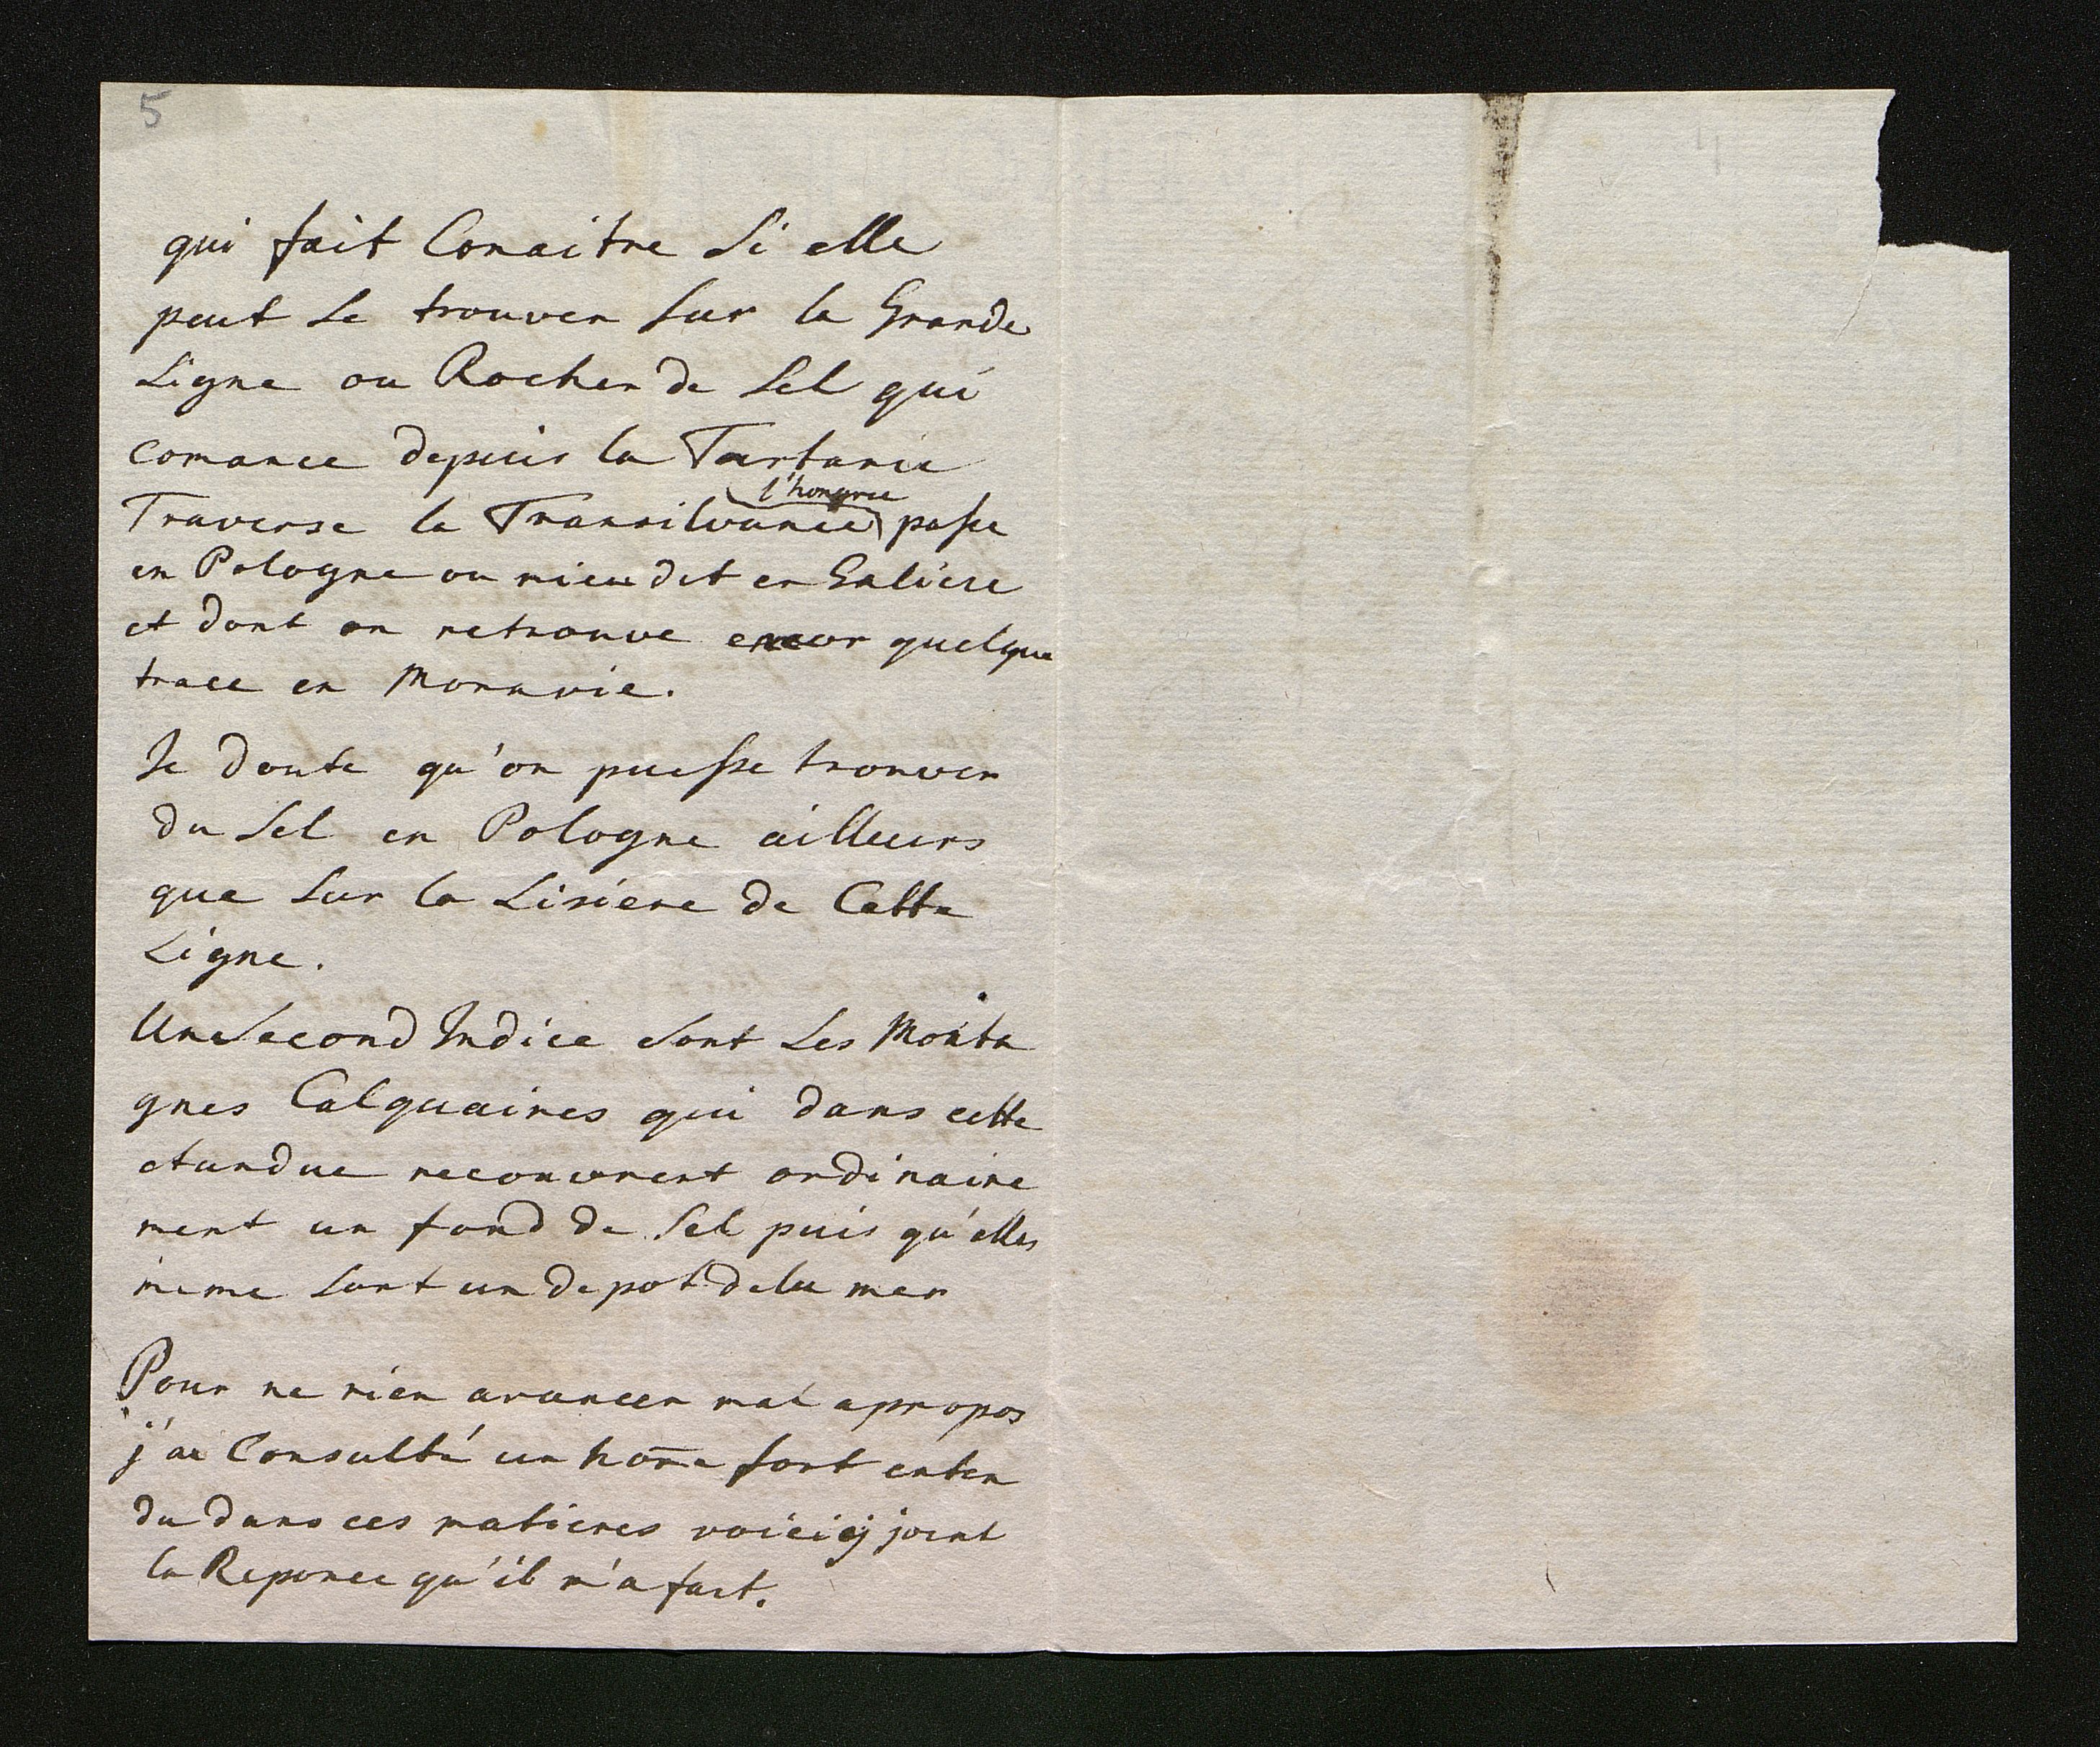 5
qui fait Conaitre Si elle
peut Se trouver Sur la Grande
Ligne ou Rocher de Sel qui
comance depuis la Tartarie
l'hongrie
Traverse la Transilvanie passe
en Pologne ou mieu dit en Galicie
et dont on retrouve encor quelque
trace en Moravie.
Je Doute qu'on puisse trouver
du Sel en Pologne ailleurs
que Sur la Lisiere de Cette
Ligne.
Un Second Indice Sont Les Monta
gnes Calquaires qui dans cette
etandue recouvrent ordinaire
ment un fond de Sel puis qu'elles
meme Sont un depot de la mer
Pour ne rien avancer mal apropos
j'ai Consulté un home fort enten
du dans ces matieres voici cy joint
la Reponce qu'il m'a fait.